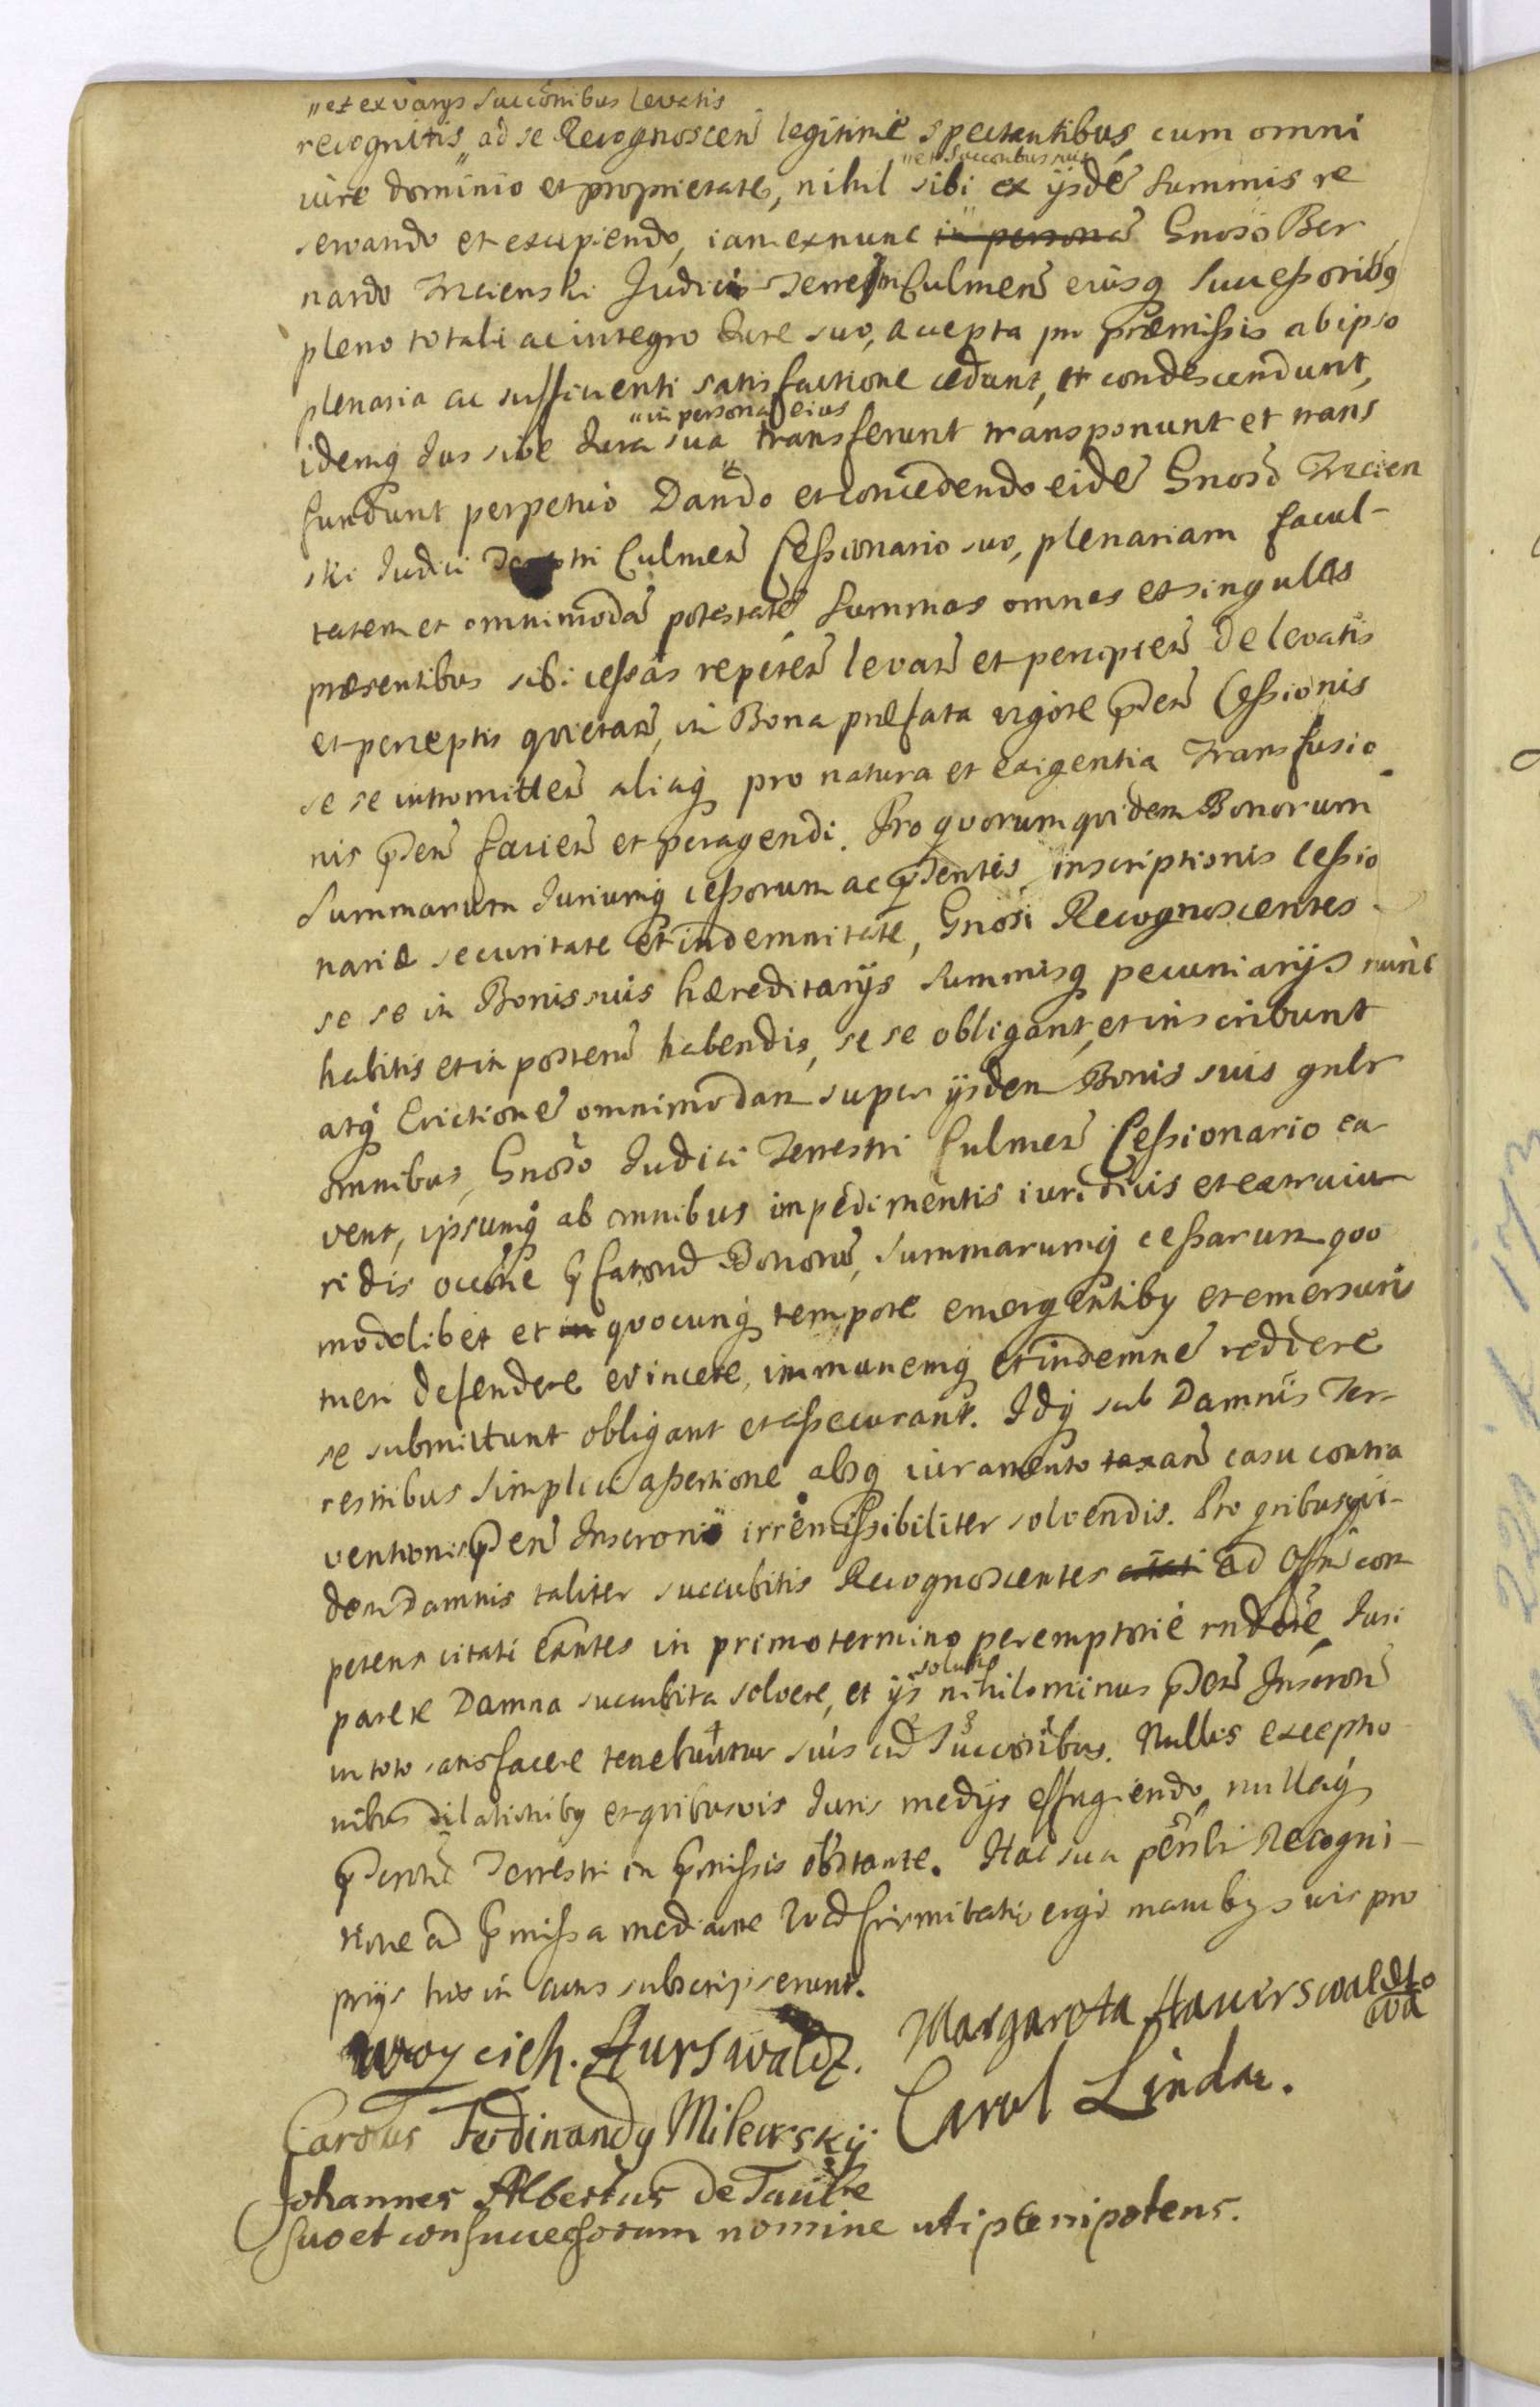 "et ex varys succonibus levatis
recognitis "ad se Recognoscen legitime spectantibus, cum omni
"et succonibus suis
iure dominio et proprietate, nihil sibi ex ijsdē summis re
servando et excipiendo, iam ex nunc in personā Gnoso Ber
nardo Trzcienski Judici Terrestri Culmeñ eiusq Successoribus
pleno totali ac integro Iure suo, accepta pro præmissis ab ipso
plenaria ac sufficienti satisfactione cedunt, et condescendunt,
"in personā eius
idemq Ius sive Iura sua transferunt transponunt et trans
fundunt perpetuo Dando et concedendo eidē Gnoso Trzcien
ski Judici Terrestri Culmeñ Cessionario suo, plenariam facul-
tatem et omnimodā potestatē Summas omnes et singulas
præsentibus sibi cessas repeteñ levañ et percipieñ de levatis
et perceptis quietañ, in Bona præfata vigore p̄deñ Cessionis
se se intromitteñ aliaq pro natura et exigentia Transfusio
nis p̄deñ facieñ et peragendi. Pro quorum quidem Bonorum
Summarum Iuriumq cessorum ac p̄dentis inscriptionis cessio
nariæ securitate et indemnitate, Gnosi Recognoscentes
se se in Bonis suis hæreditarijs summisq pecuniarijs nunc
habitis et in posterū habendis, se se obligant, et inscribunt
atq Evictionē omnimodam super ijsdem Bonis suis gnlr
omnibus, Gnoso Judici Terrestri Culmeñ Cessionario ca
vent, ipsumq ab omnibus impedimentis iuridicis et extraiu
ridis occōne p̄fatorū Bonorū, Summarumq cessarum quo
modolibet et in quocunq tempore emergentibq et emersuris
tueri defendere evincere, immunemq et indemnē reddere
se submittunt obligant et assecurant. Idq sub Damnis Ter-
restribus simplici assertione absq iuramento taxañ casu contra
ventionis p̄deñ Inscronis irremissibiliter solvendis. Pro quibus qui-
dem Damnis taliter succubitis Recognoscentes citati ad Offm com
petens citati exntes in primo termino peremptorie rndere Iuri
parere Damna succubita solvere, et ijs solutis nihilominus p̄deñ Inscronī
in toto satisfacere tenebuntur suis cū Succoribus. Nullis exceptio
nibus dilationibq et quibusvis Iuris medijs effugiendo, nullaq
p̄dentiō Terrestri in p̄missis obstante. Hac sua pērsli Recogni-
tione ad p̄missa mediante in cuius firmitatis ergo manibq suis pro
prijs hic in actis subscripserunt.
Woyciech. Aurswaldt. Margareta Hauerswaldto
wa
Carolus Ferdinandq Milewskij Carol Lindau.
Johannes Albertus De Taube
suo et consuccessorum nomine uti plenipotens.